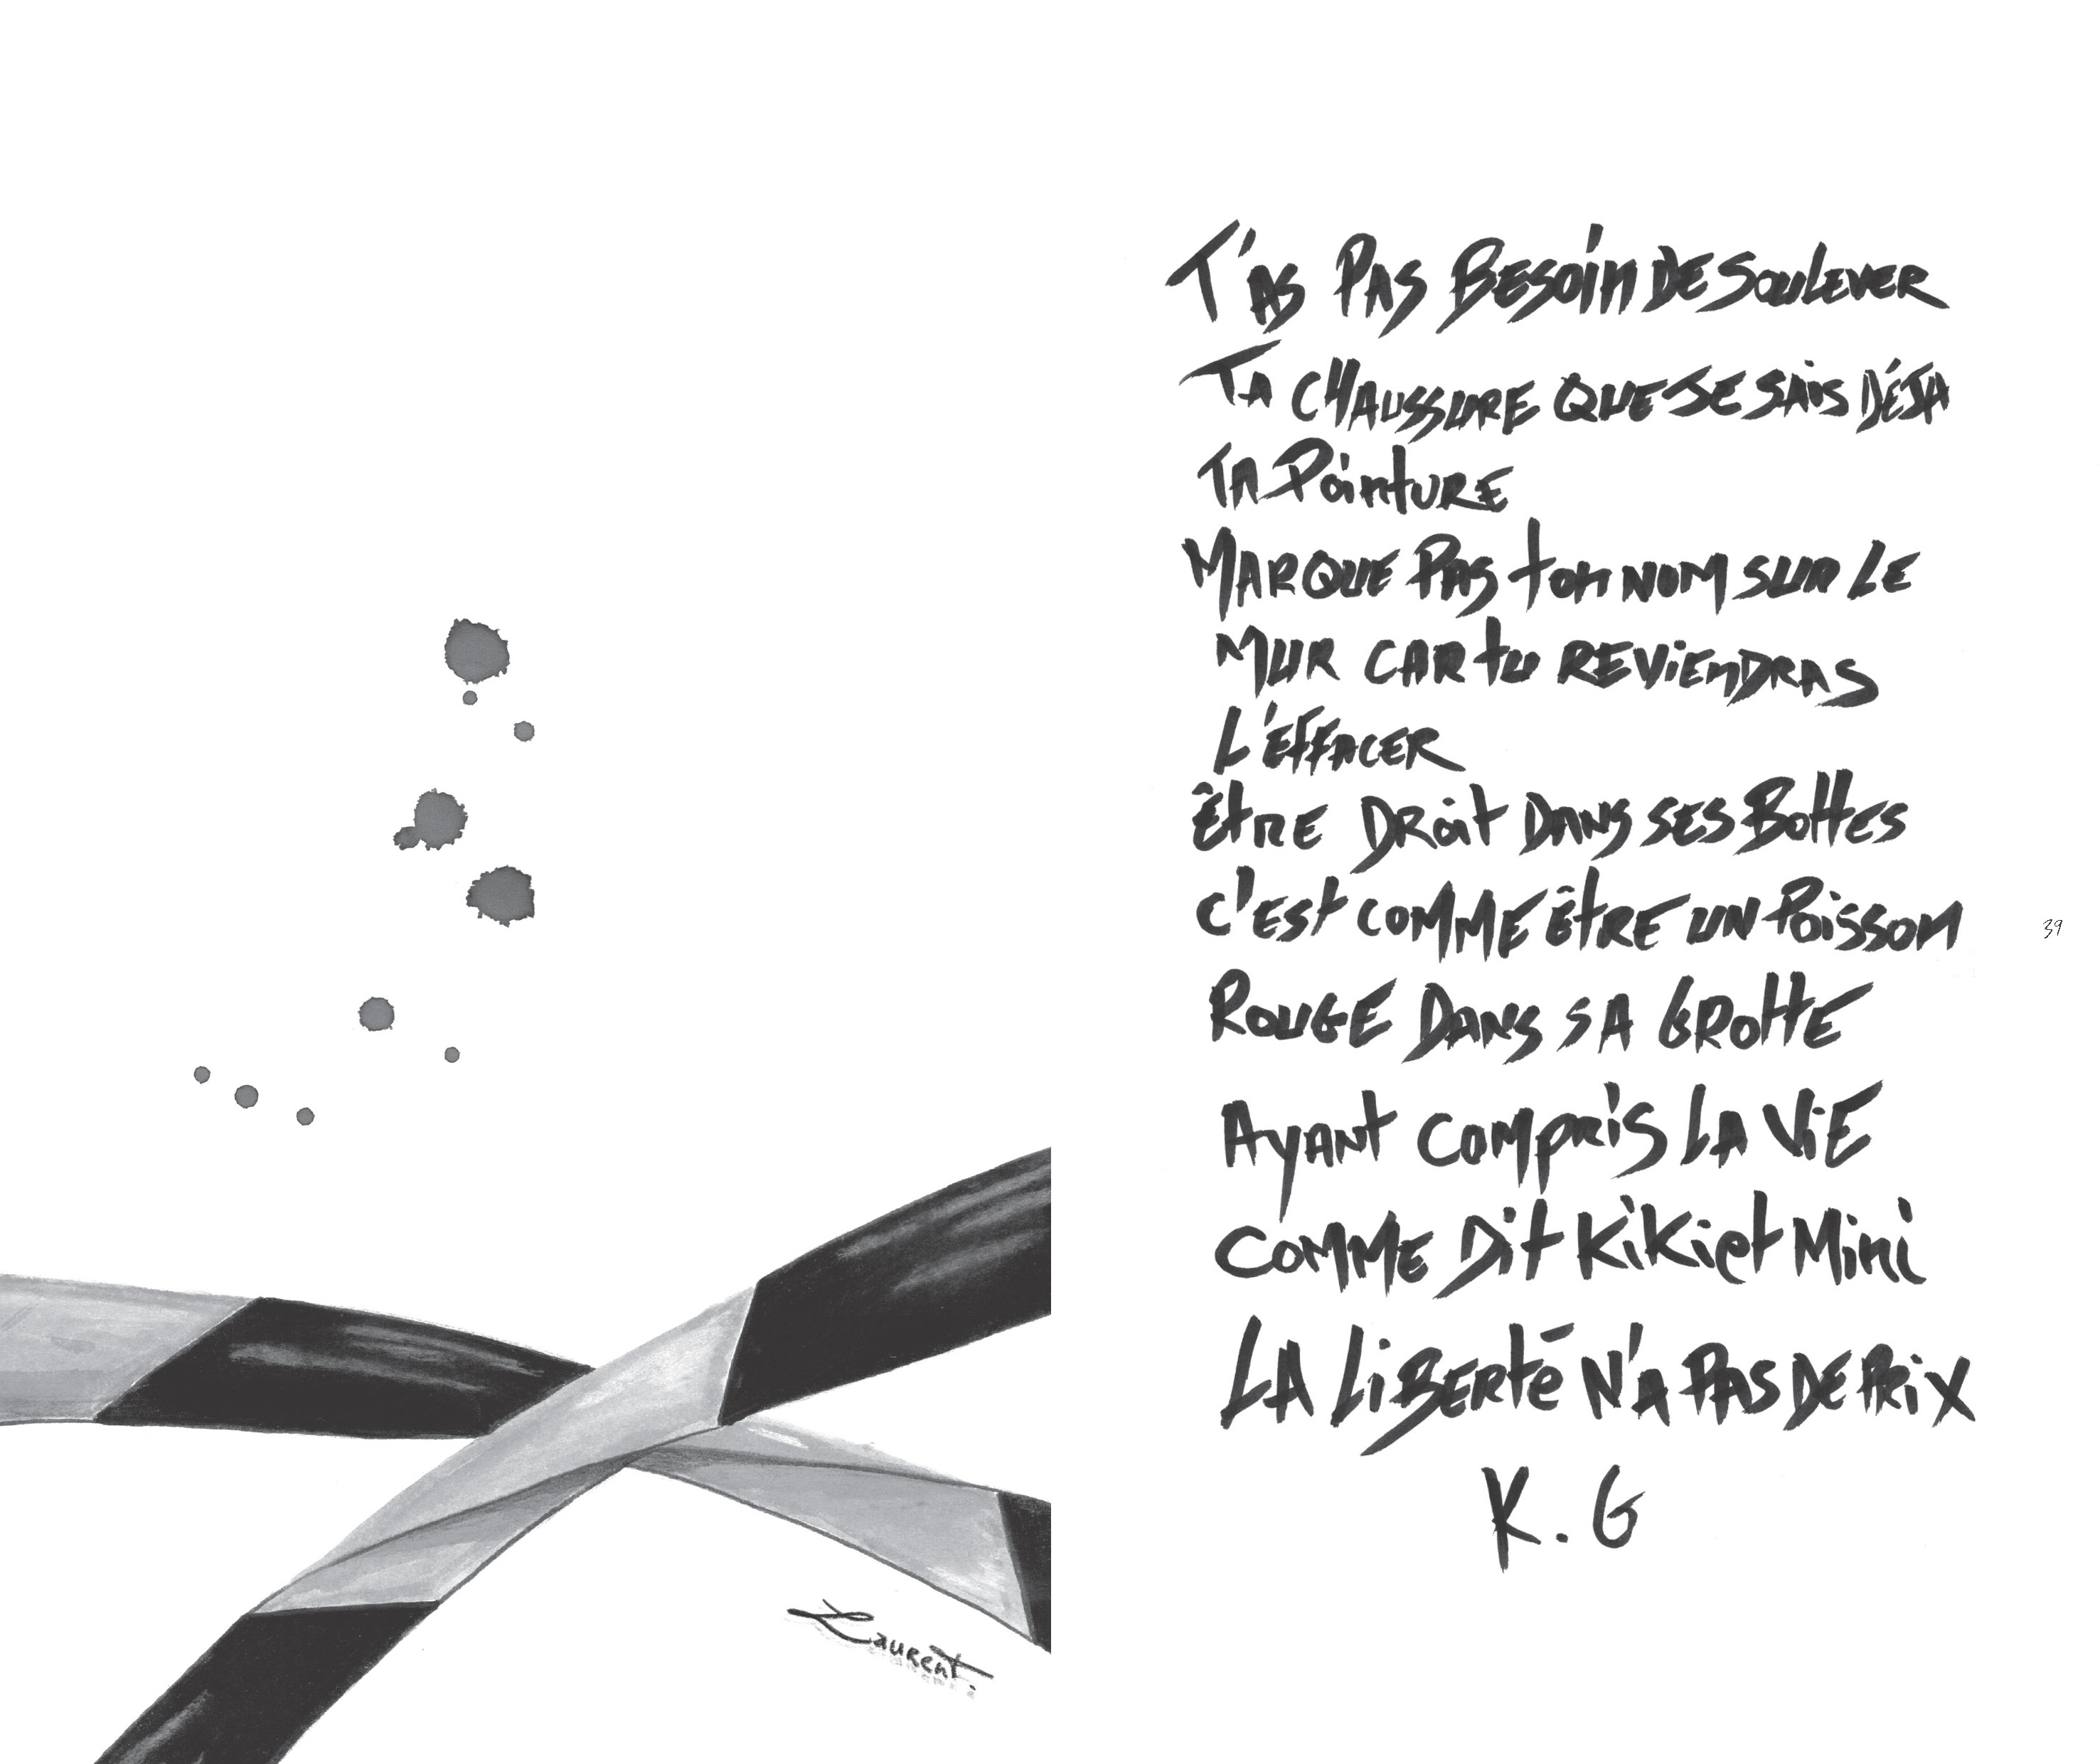 T'as pas besoin de soulever
ta chaussure que je sais déjà
ta pointure
Marque pas ton nom sur le
mur car tu reviendras
l'effacer
être droit dans ses bottes
c'est comme être un poisson
rouge dans sa grotte
Ayant compris la vie
comme dit Kiki et Mini
La liberté n'a pas de prix
K.G
39
Laurent.